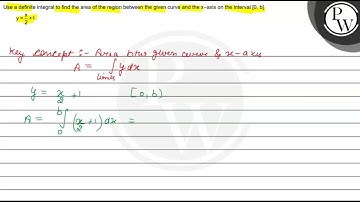 Use a definite integral to find the area of the region between the given curve and the x-axis on the interval [0, b].
y = x/2 + 1
Key Concept :- Area btw given curve & x-axis
A = ∫ y dx
limits
y = x/2 + 1 [0, b)
A = ∫₀ᵇ (x/2 + 1) dx =
PW